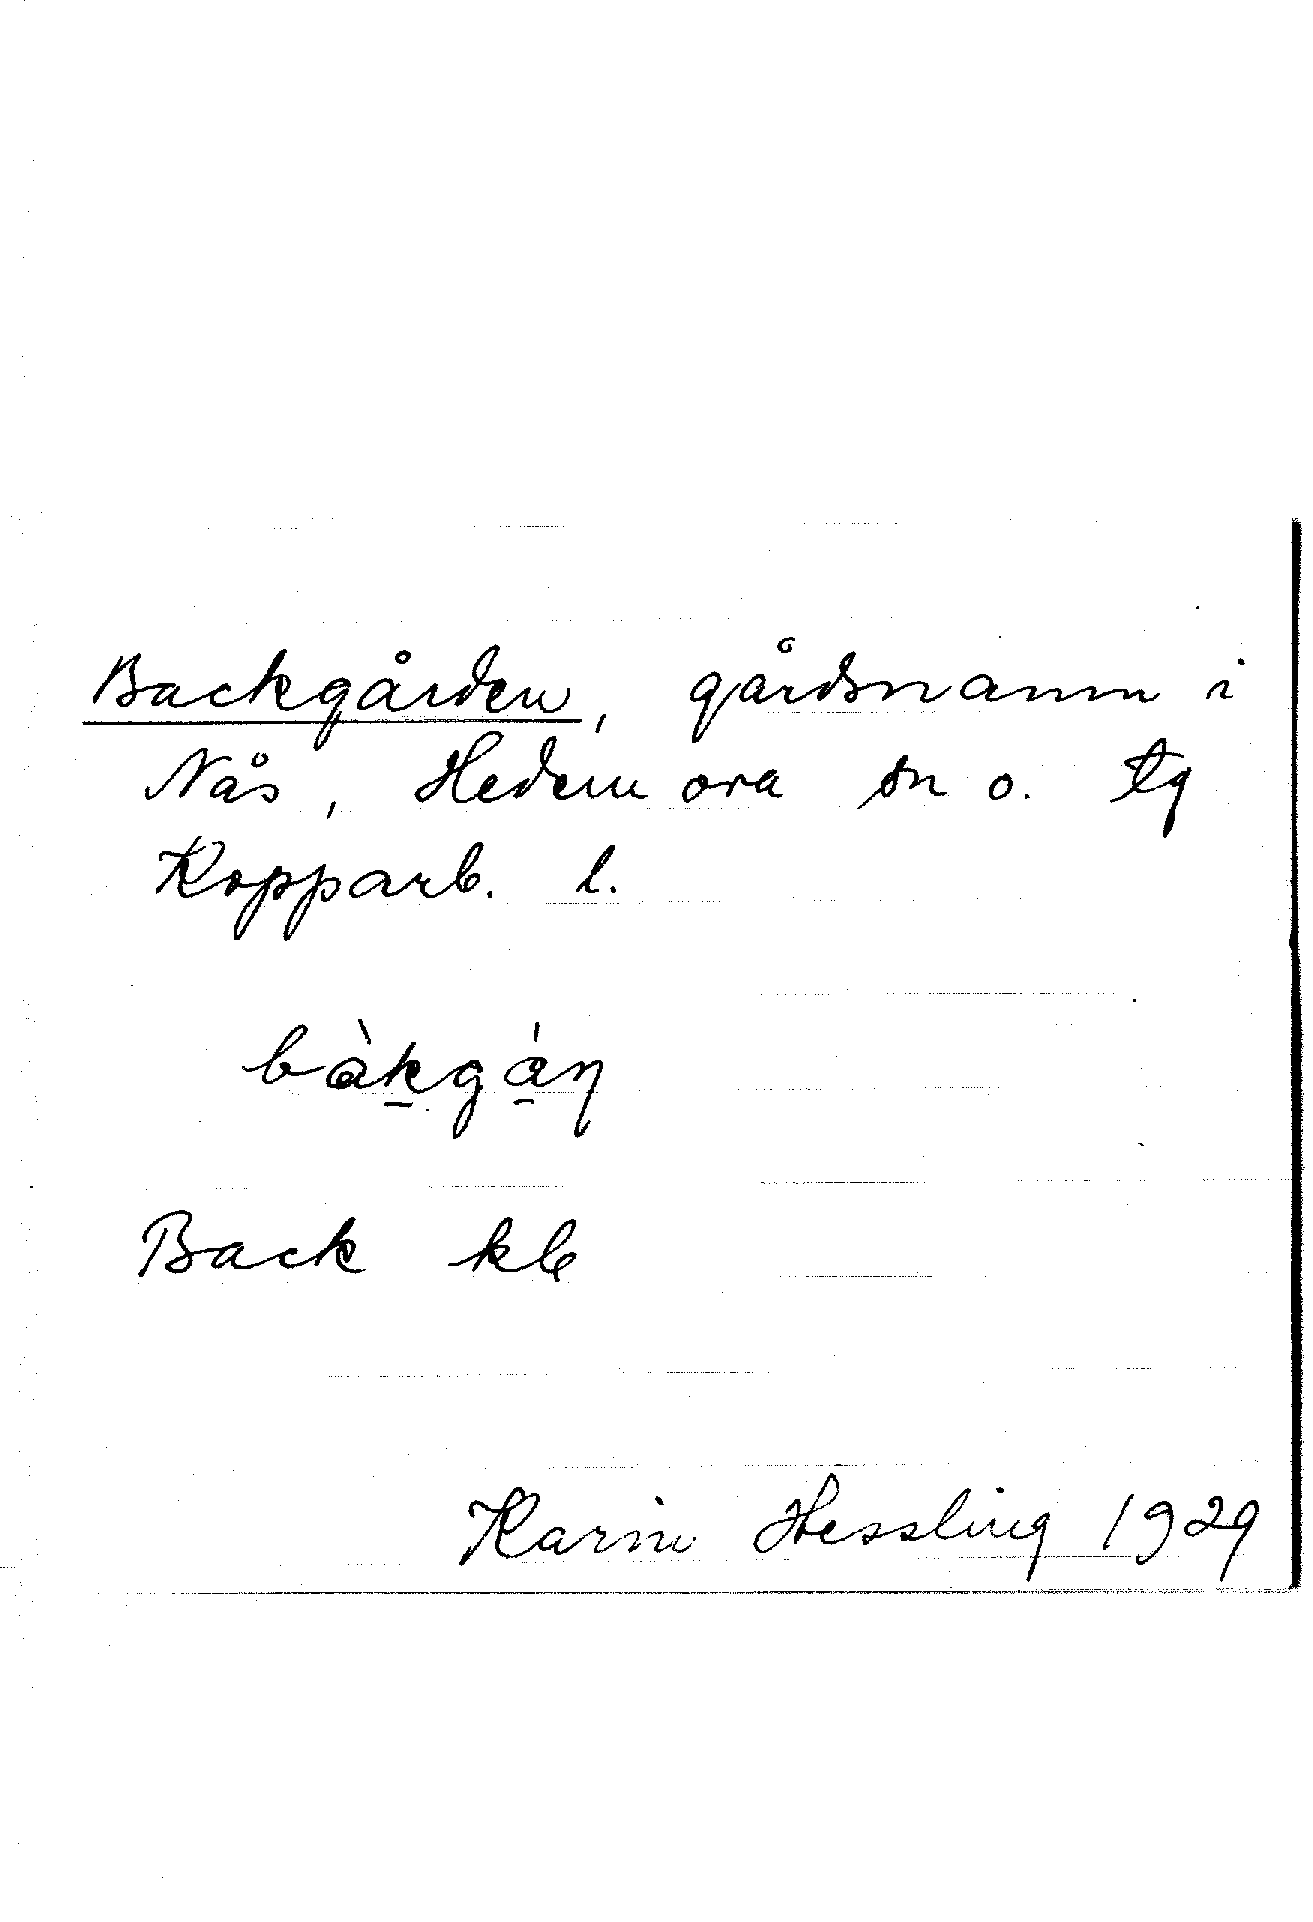 Backgården, gårdsnamn i
Nås, Hedemora sn o. tg
Kopparb. l.
bàk̠gǻ̠ṇ
Back kb
Karin Hessling 1929